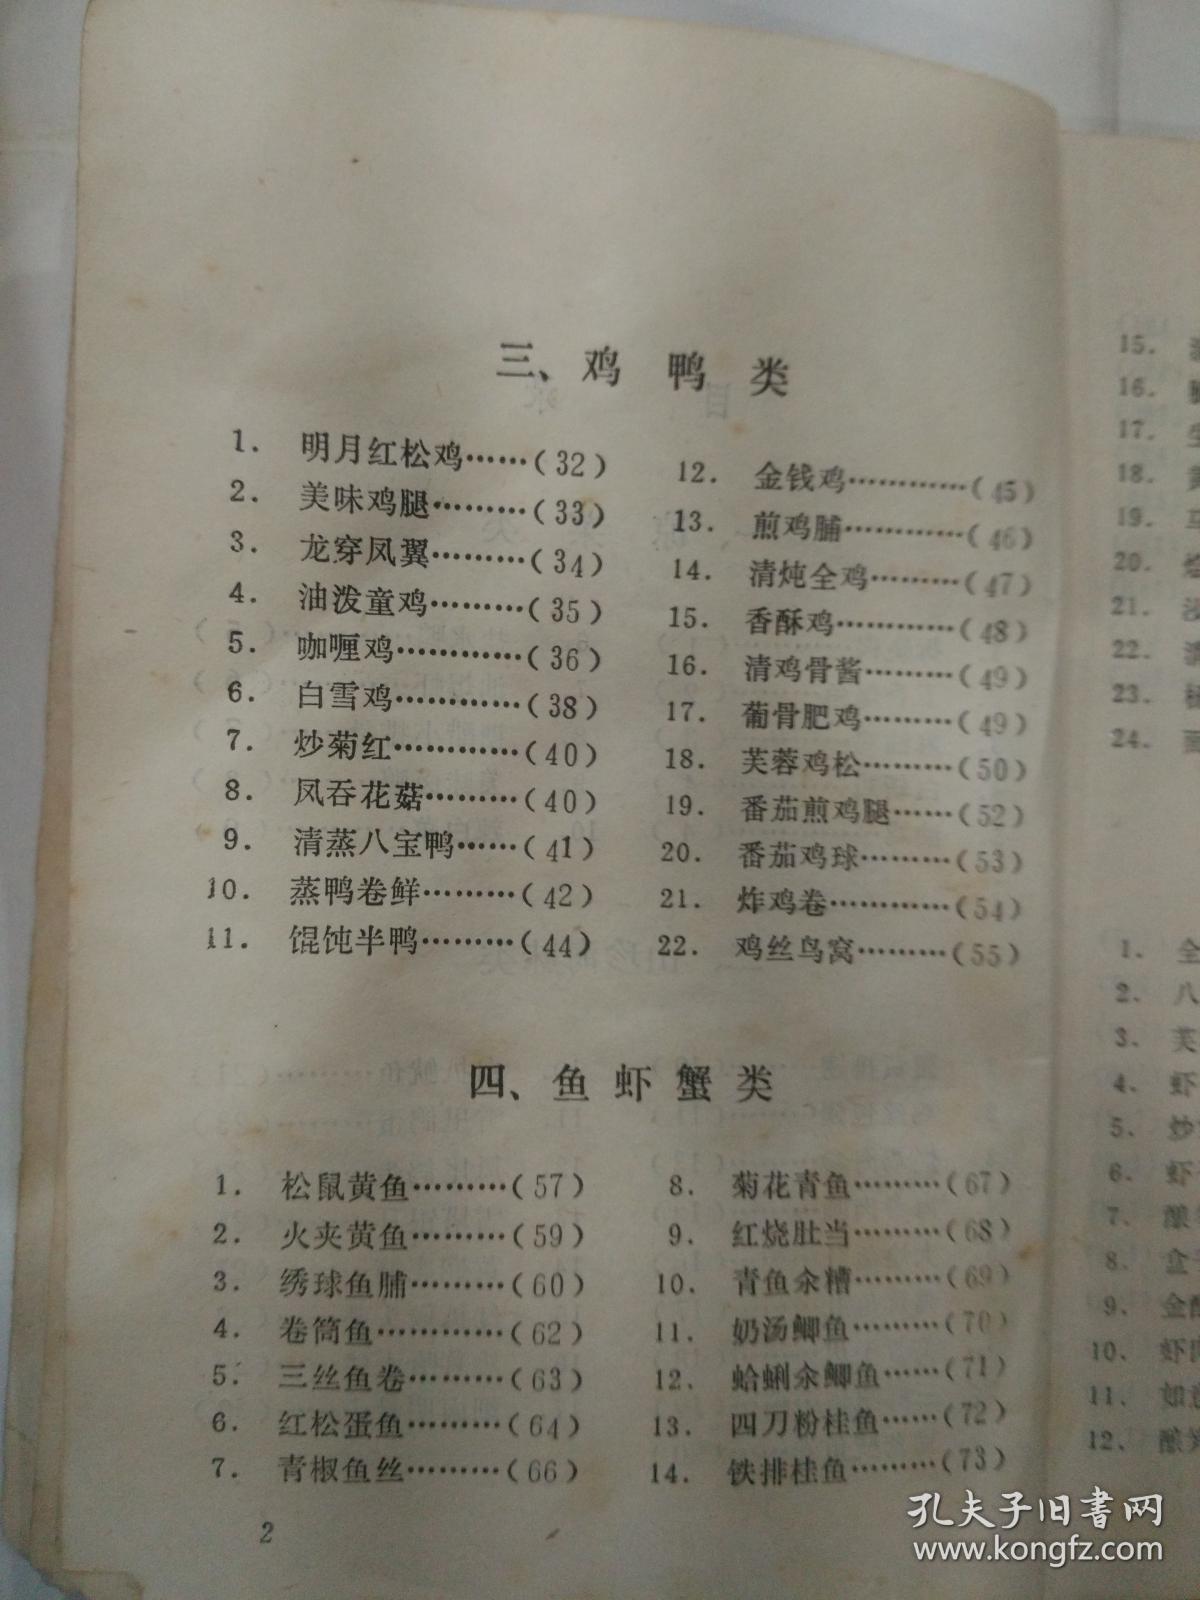 三、鸡鸭类
1. 明月红松鸡……(32)
2. 美味鸡腿………(33)
3. 龙穿凤翼………(34)
4. 油泼童鸡………(35)
5. 咖喱鸡…………(36)
6. 白雪鸡…………(38)
7. 炒菊红…………(40)
8. 凤吞花菇………(40)
9. 清蒸八宝鸭……(41)
10. 蒸鸭卷鲜………(42)
11. 馄饨半鸭………(44)
12. 金钱鸡…………(45)
13. 煎鸡脯…………(46)
14. 清炖全鸡………(47)
15. 香酥鸡…………(48)
16. 清鸡骨酱………(49)
17. 葡骨肥鸡………(49)
18. 芙蓉鸡松………(50)
19. 番茄煎鸡腿……(52)
20. 番茄鸡球………(53)
21. 炸鸡卷…………(54)
22. 鸡丝鸟窝………(55)
四、鱼虾蟹类
1. 松鼠黄鱼………(57)
2. 火夹黄鱼………(59)
3. 绣球鱼脯………(60)
4. 卷筒鱼…………(62)
5. 三丝鱼卷………(63)
6. 红松蛋鱼………(64)
7. 青椒鱼丝………(66)
8. 菊花青鱼………(67)
9. 红烧肚当………(68)
10. 青鱼氽糟………(69)
11. 奶汤鲫鱼………(70)
12. 蛤蜊氽鲫鱼……(71)
13. 四刀粉桂鱼……(72)
14. 铁排桂鱼………(73)
2
15.
16.
17.
18.
19.
20.
21.
22.
23.
24.
1. 全
2. 八
3. 芙
4. 虾
5. 炒
6. 虾
7. 酿
8. 盒
9. 金
10. 虾
11. 如
12. 酿
孔夫子旧书网
www.kongfz.com